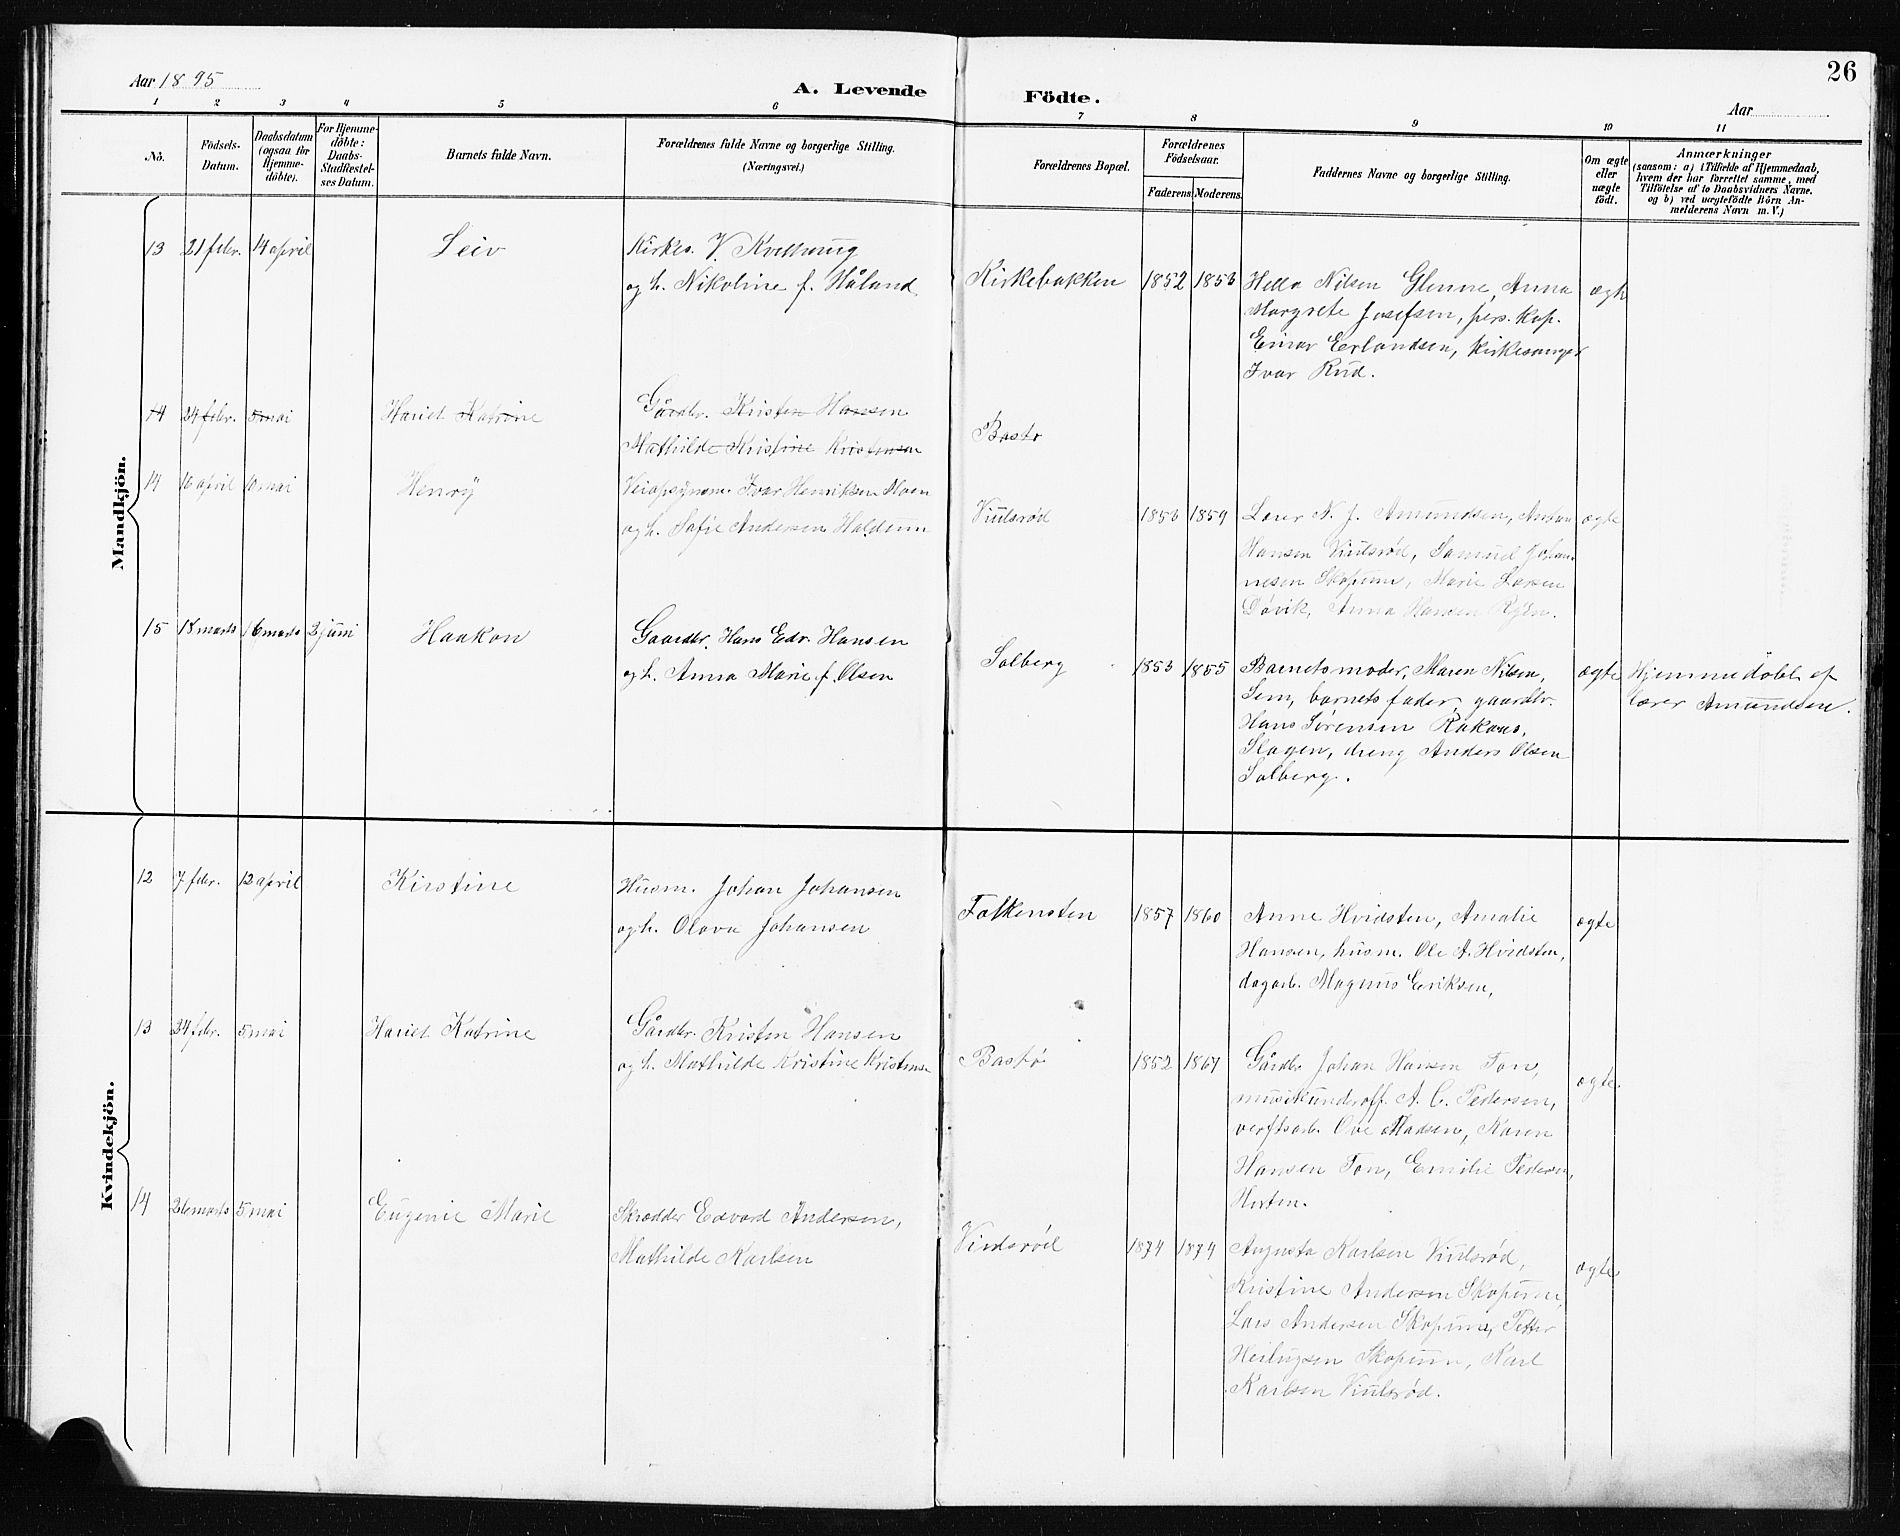 26
Aar 1895
A. Levende Födte.
Aar
1 2 3 4 5 6 7 8 9 10 11
Nö.
Födsels-
Datum.
Daabsdatum
(ogsaa for
Hjemme-
döbte).
For Hjemme-
döbte:
Daabs-
Stadfæstel-
ses Datum.
Barnets fulde Navn.
Forældrenes fulde Navne og borgerlige Stilling.
(Næringsvei.)
Forældrenes Bopæl.
Forældrenes
Födselsaar.
Faderens. Moderens.
Faddernes Navne og borgerlige Stilling.
Om ægte
eller
uægte
födt.
Anmærkninger
(saasom: a) i Tilfælde af Hjemmedaab,
hvem der har forrettet samme, med
Tilföielse af to Daabsvidners Navne.
og b) ved uægtefödte Börn An-
melderens Navn m. V.)
Mandkjön.
13 21 febr. 14 april Leiv Kirkes. V. Kvelhaug
og h. Nikoline f. Håland
Kirkebakken 1852 1853 Hella Nilsen Glenne, Anna ægte
Margrete Josefsen, pers. kap.
Einar Erlandsen, kirkesanger
Ivar Rud.
14 24 febr. 5 mai Hariet Katrine Gårdbr. Kristen Hansen
Mathilde Kristine Kristensen
Bastø
14 16 april 10 mai Henry Veiopsynsm. Ivar Henriksen Moen
og h. Sofie Andersen Haldum
Viulsrød 1856 1859 Lærer N. J. Amundsen, Anton ægte
Hansen Viulsrød, Samuel Johan-
nesen Skopum, Marie Larsen
Døvik, Anna Hansen
15 18 marts 16 marts 3 juni Haakon Gaardbr. Hans Edv. Hansen
og h. Anna Marie f. Olsen
Solberg 1853 1855 Barnets moder, Maren Nilsen, ægte Hjemmedøbt af
Sem, barnets fader, gaardbr. lærer Amundsen.
Hans Sørensen
Slagen, dreng Anders Olsen
Solberg.
Kvindekjön.
12 7 febr. 12 april Kirstine Husm. Johan Johansen
og h. Olava Johansen
Falkensten 1857 1860 Anne Hvidsten, Amalie ægte
Hansen, husm. Ole A. Hvidsten,
dagarb. Magnus Eriksen,
13 24 febr. 5 mai Hariet Katrine Gårdbr. Kristen Hansen
og h. Mathilde Kristine Kristensen
Bastø 1852 1867 Gårdbr. Johan Hansen Ton, ægte.
musikunderoff. A. C. Pedersen,
verftsarb. Ove Madsen, Karen
Hansen Ton, Emilie Pedersen,
Horten.
14 26 marts 5 mai Eugenie Marie Skrædder Edvard Andersen,
Mathilde Karlsen
Viulsrød 1874 1874 Augusta Karlsen Viulsrød, ægte
Kristine Andersen Skopum,
Lars Andersen Skopum, Petter
Skopum, Karl
Karlsen Viulsrød.